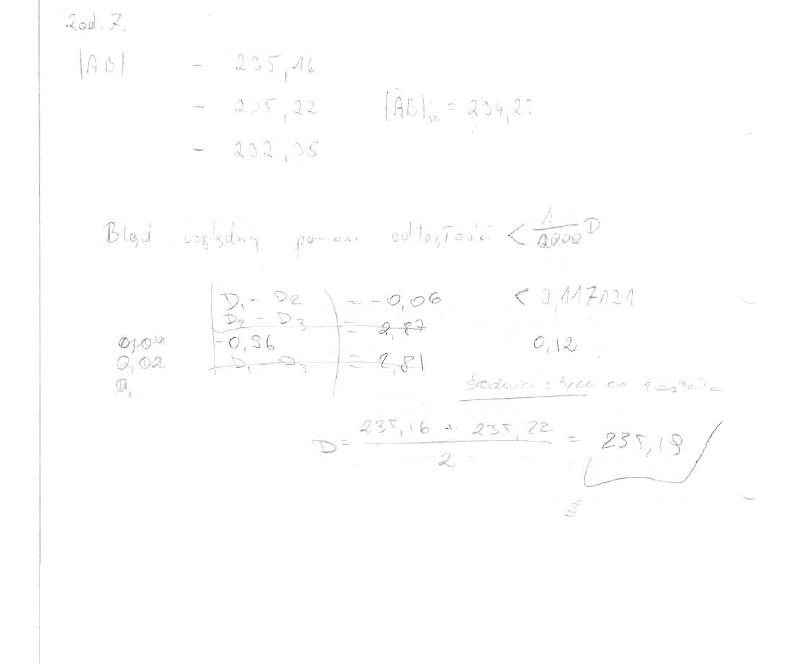 Zad. 7.
|AB| - 235,16
- 235,22 |AB|śr. = 234,2
- 232,35
Błąd względny pomiaru odległości < 1/2000 D
D₁ - D₂ = -0,06 < 0,117121
D₂ - D₃ = 2,87
-0,96 0,12
0,02 D₁ - D₃ = 2,81
0,
średnia z tych co
D = (235,16 + 235,22)/2 = 235,19